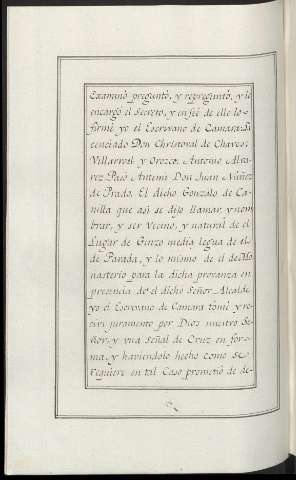 Examinó preguntó, y repreguntó, y le
encargó el Secreto, y en feé de ello lo
firmé yo el Escrivano de Camara Li
cenciado Don Christoval de Chaves,
Villarroel y Orozco. Antonio Alva
rez. Pasó Antemi Don Juan Nuñez
de Prado. El dicho Gonzalo de Ca-
nilla que asi se dijo llamar y nom
brar, y ser Vecino, y natural de el
Lugar de Ginzo media legua de el
de Parada, y lo mismo de el de Mo
nasterio para la dicha provanza en
precencia de el dicho Señor Alcalde
yo el Escrivano de Camara tomé y re-
civi juramento por Dios nuestro Se-
ñor, y vna señal de Cruz en for-
ma, y haviendolo hecho como se
requiere en tal Caso prometió de de-